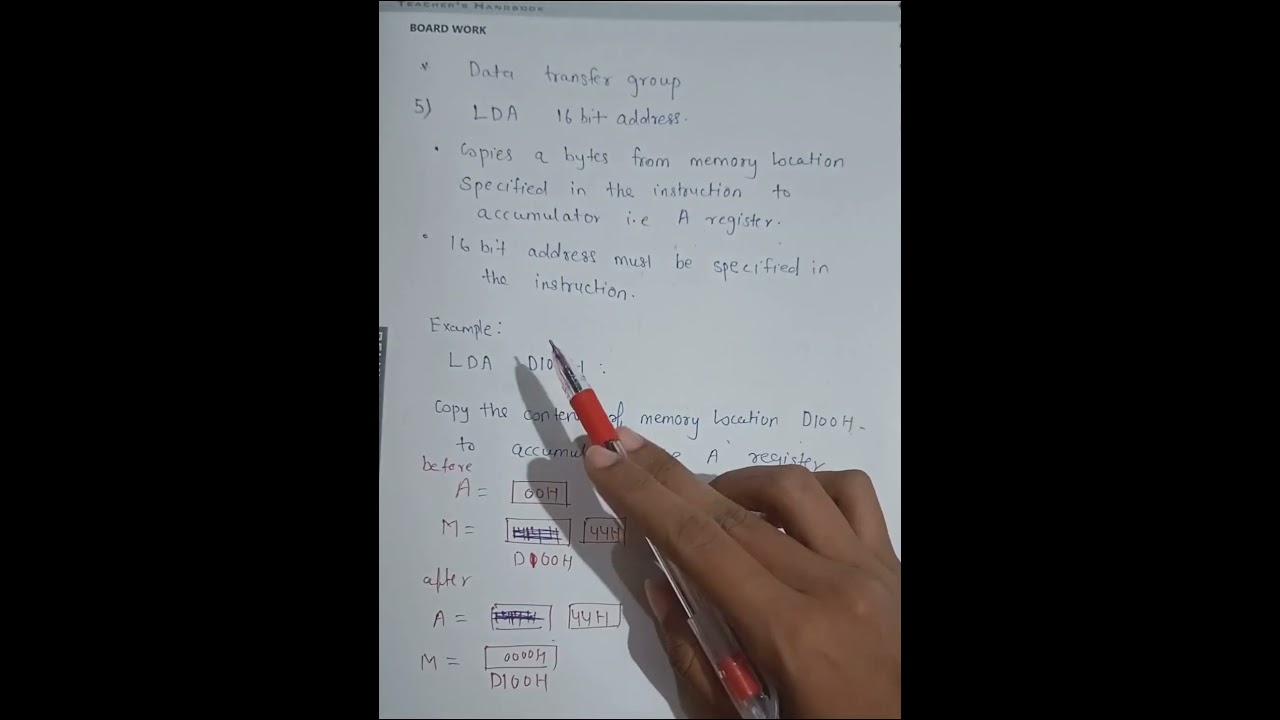 TEACHER'S HANDBOOK
BOARD WORK
* Data transfer group
5) LDA 16 bit address.
• Copies a bytes from memory location
Specified in the instruction to
accumulator i.e A register.
• 16 bit address must be specified in
the instruction.
Example:
LDA :
Copy the memory location D100H
to A register
before
A = 00H
M = 44H
D100H
after
A = 44H
M = 0000H
D100H